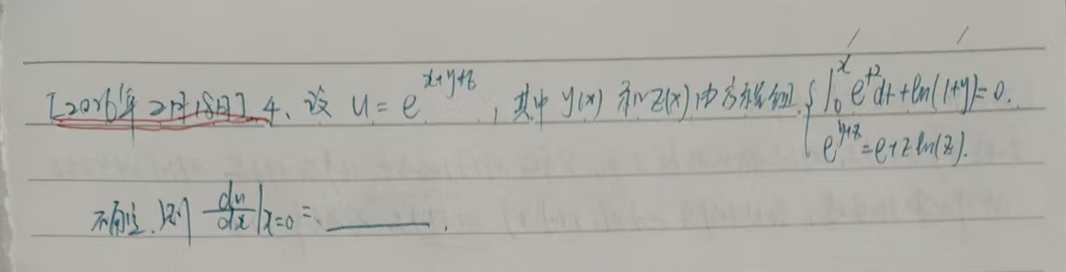 [2026年2月18日] 4、设 u = e^{x+y+z}, 其中 y(x) 和 z(x) 由方程组 { ∫_0^x e^{t²}dt+ln(1+y)=0.
e^{y+z}=e+z ln(z).
确定. 则 du/dx|_{x=0}=______.